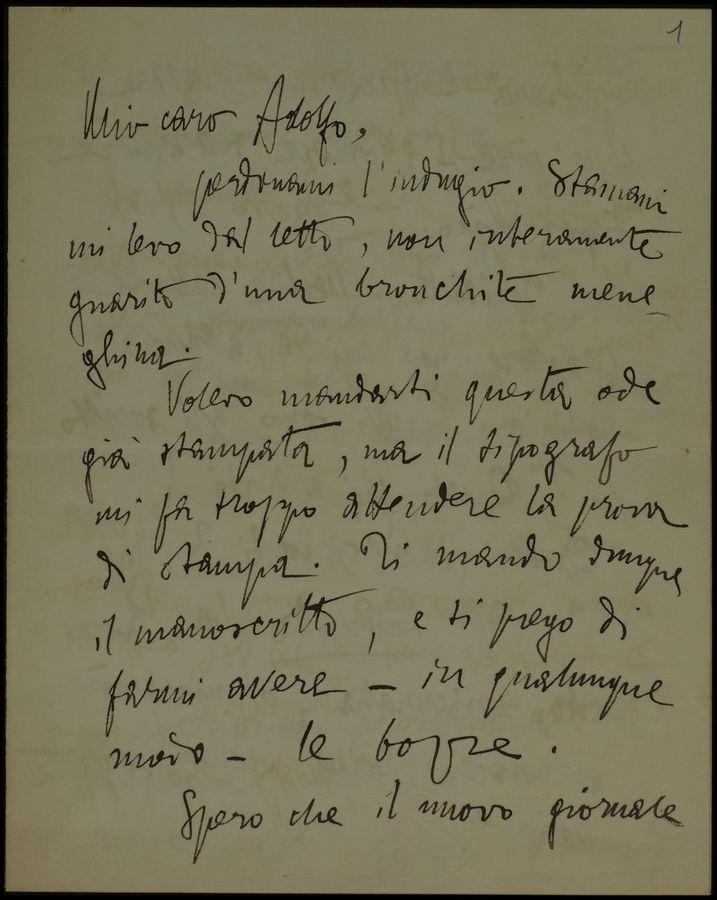 1
Mio caro Adolfo,
perdonami l'indugio. Stamani
mi levo dal letto, non interamente
guarito d'una bronchite mene-
ghina.
Volevo mandarti questa ode
già stampata, ma il tipografo
mi fa troppo attendere la prova
di stampa. Ti mando dunque
il manoscritto, e ti prego di
farmi avere – in qualunque
modo – le bozze.
Spero che il nuovo giornale